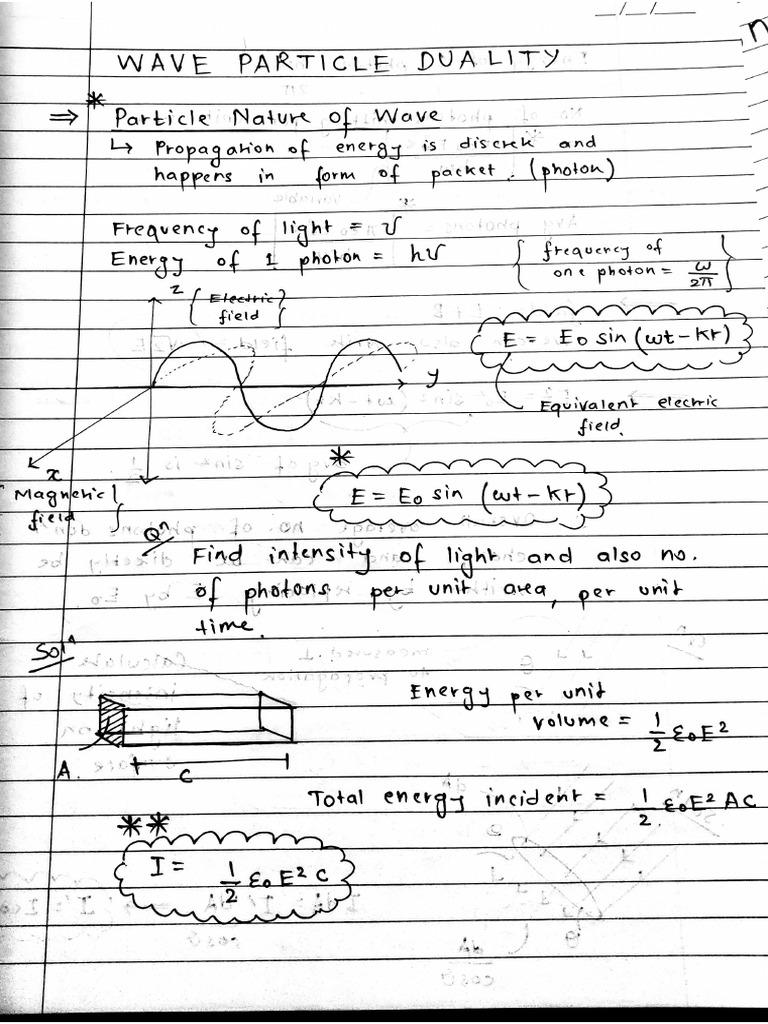 WAVE PARTICLE DUALITY
* ⇒ Particle Nature of Wave
↳ Propagation of energy is discrete and
happens in form of packet. (photon)
Frequency of light = ν
Energy of 1 photon = hν
{ frequency of
one photon = ω/2π }
z { Electric
field }
E = E₀ sin (ωt - kr)
y
Equivalent electric
field.
x
{ Magnetic
field }
*
E = E₀ sin (ωt - kr)
Qⁿ
Find intensity of light and also no.
of photons per unit area, per unit
time.
Solⁿ
Energy per unit
volume = 1/2 ε₀E²
A.
C
Total energy incident = 1/2 ε₀E² AC
**
I = 1/2 ε₀ E² C